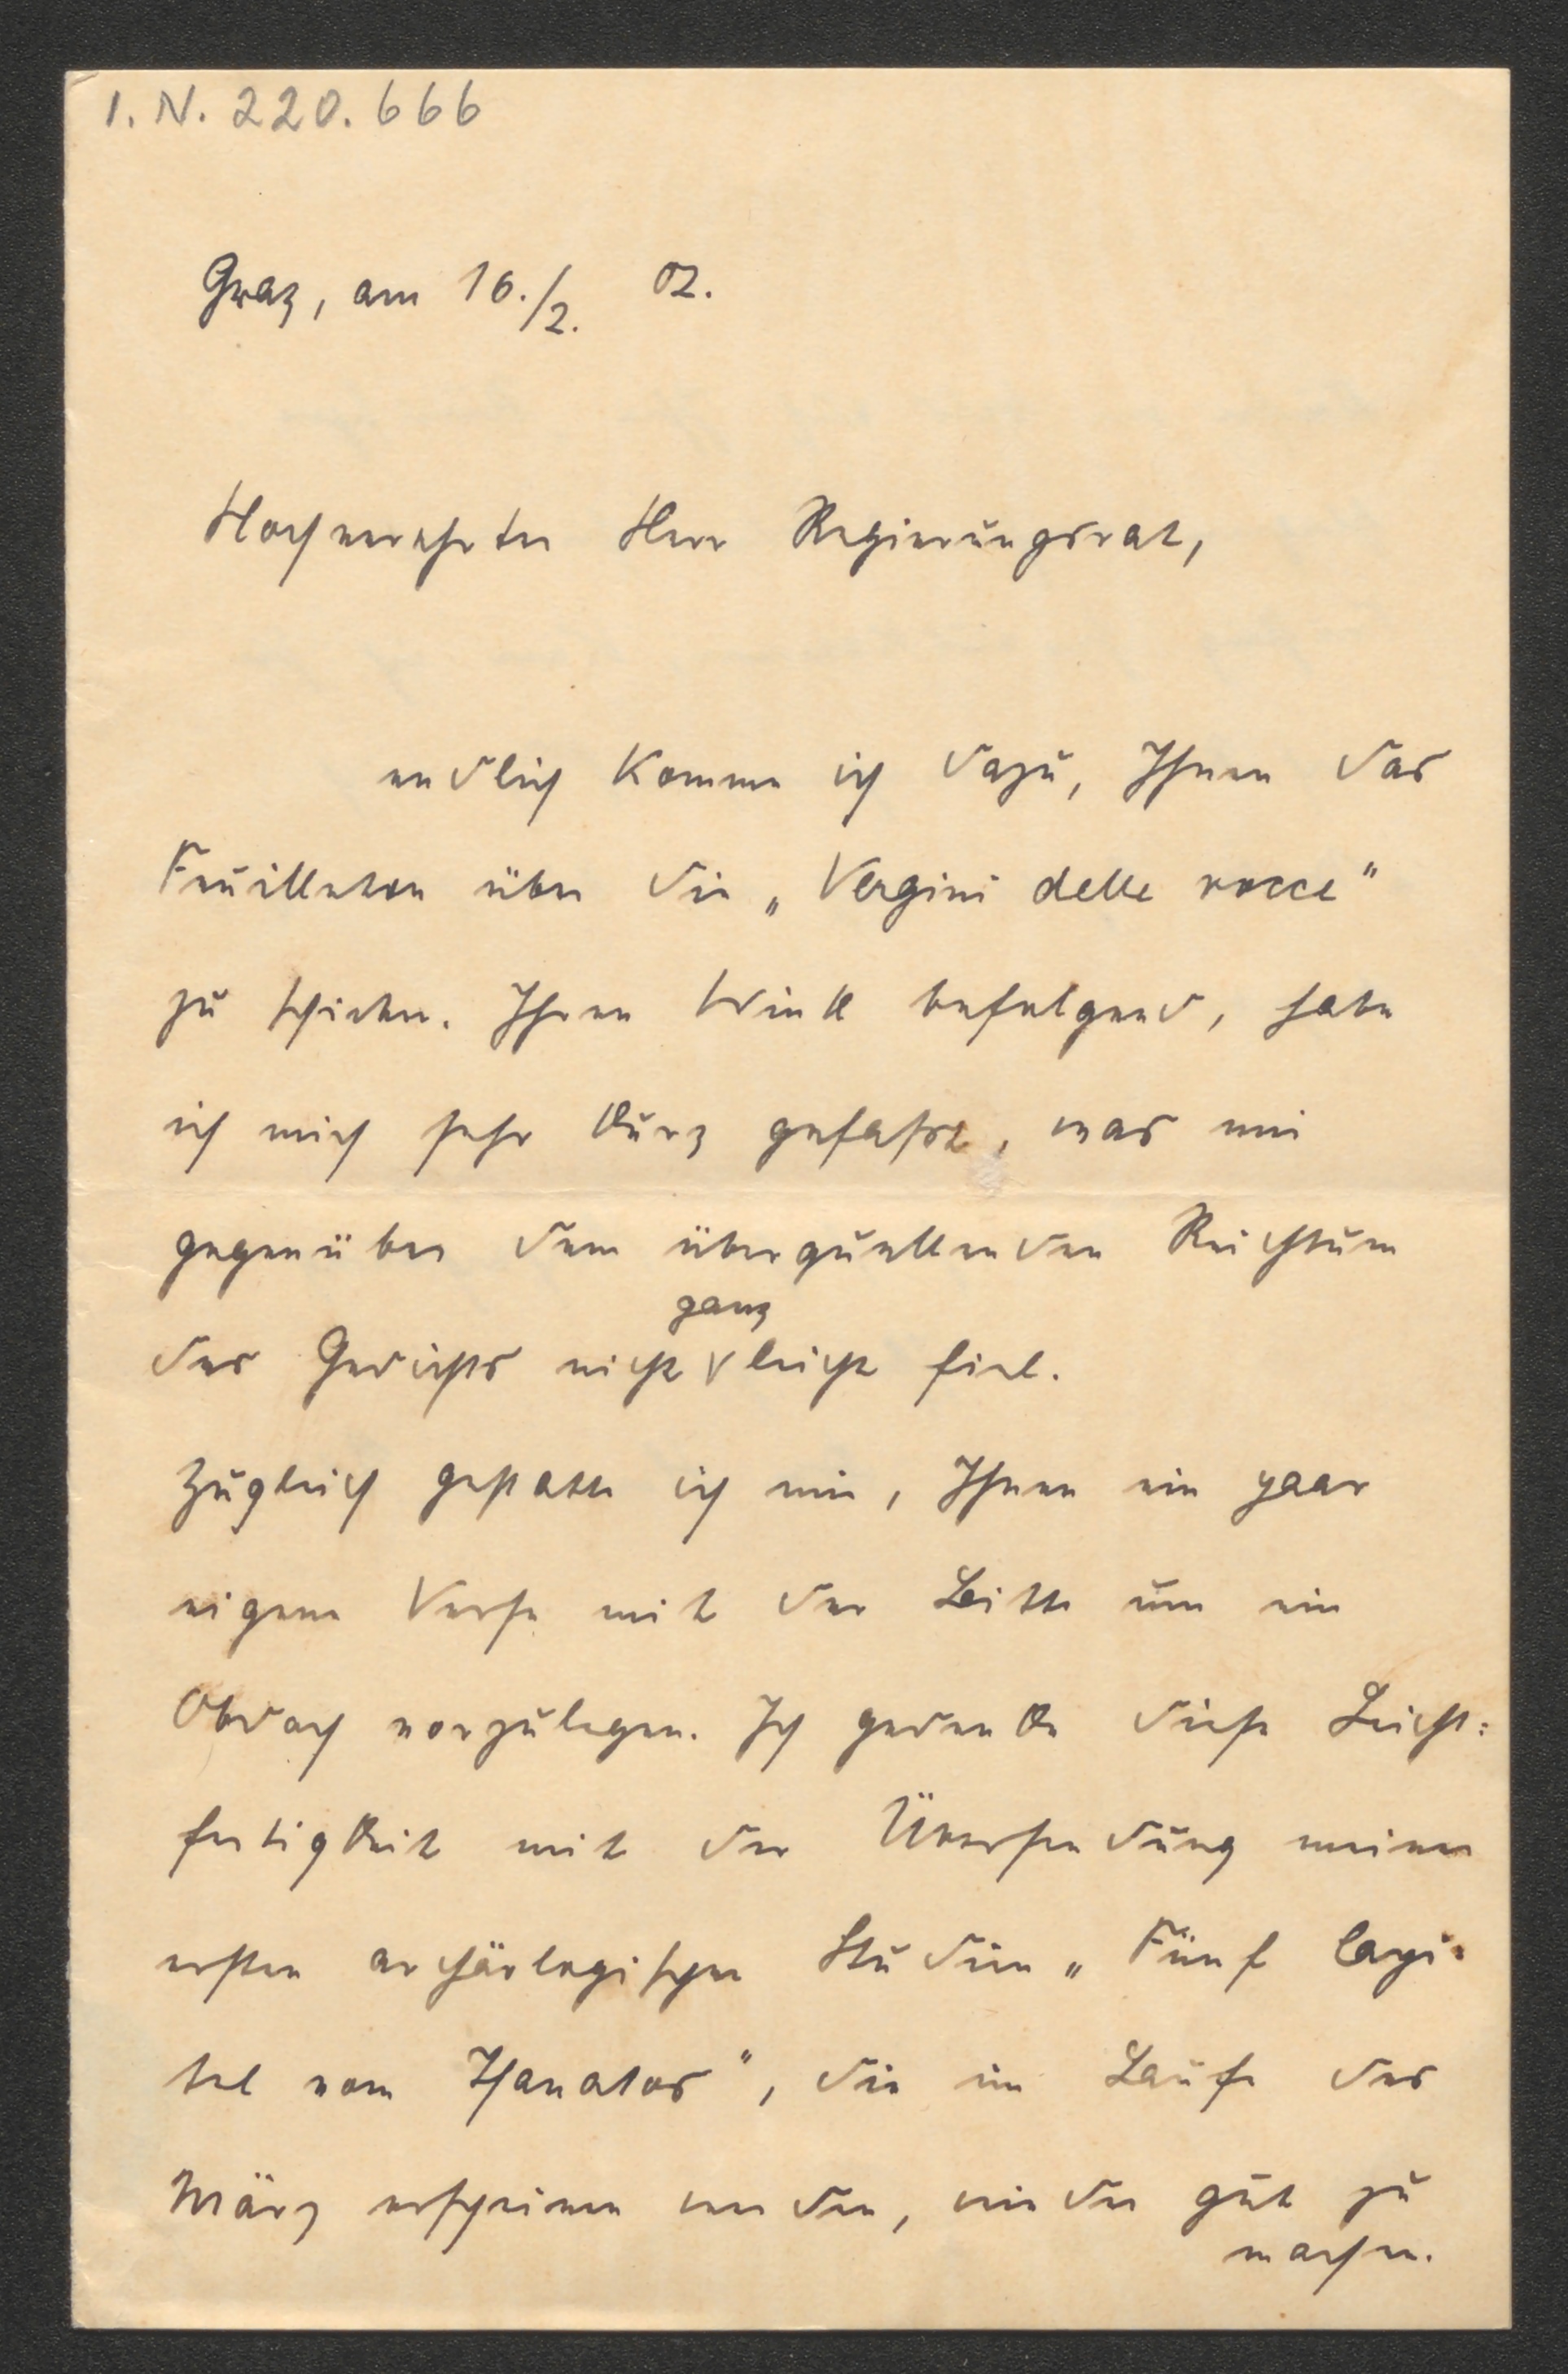 I. N. 220.666
Graz, am 16./2. 02.
Hochverehrter Herr Regierungsrat,
endlich komme ich dazu, Ihnen das
Feuilleton über die „Vergini delle rocce"
zu schicken. Ihren Wink befolgend, habe
ich mich sehr kurz gefasst, was mir
gegenüber dem überquellenden Reichtum
ganz
des Gedichts nicht leicht fiel.
Zugleich gestatte ich mir, Ihnen ein paar
eigene Verse mit der Bitte um ein
Obdach vorzulegen. Ich gedenke diese Leicht:
fertigkeit mit der Übersendung meiner
ersten archäologischen Studien „Fünf Capi-
tel vom Thanatos", die im Laufe des
März erscheinen werden, wieder gut zu
machen.